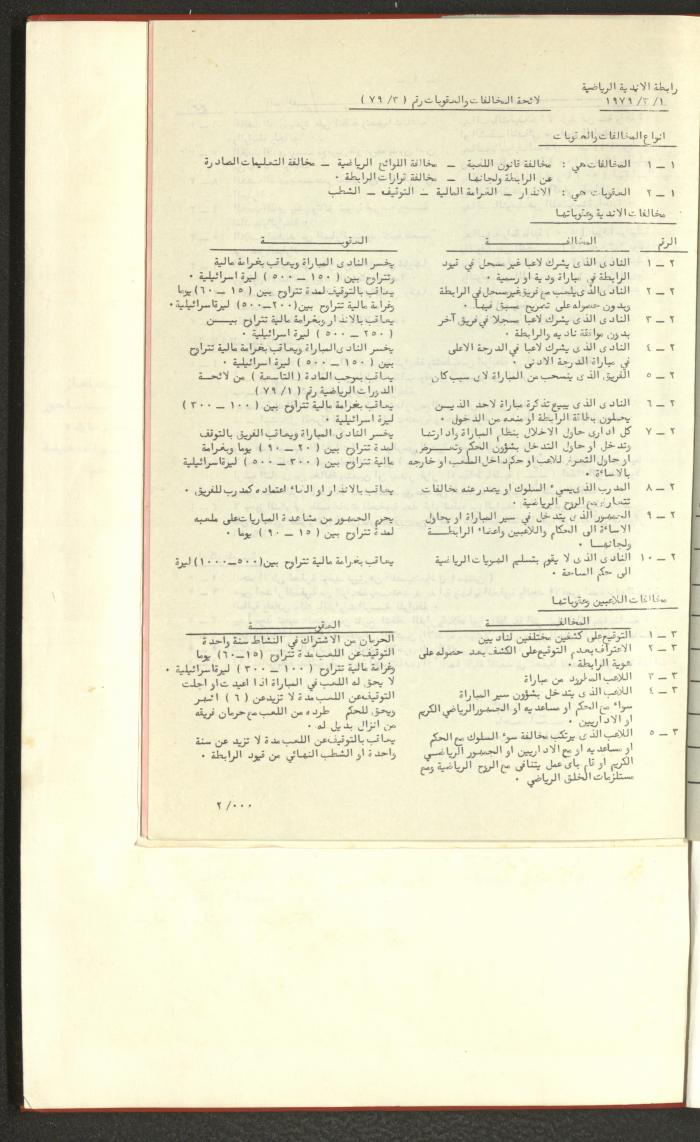 رابطة الاندية الرياضية
١/ ٣/ ١٩٧٩ لائحة المخالفات والعقوبات رقم ( ٣/ ٧٩ )
انواع المخالفات والعقوبات
١ ـ ١ المخالفات هي : مخالفة قانون اللعبة ـ مخالفة اللوائح الرياضية ـ مخالفة التعليمات الصادرة
عن الرابطة ولجانها ـ مخالفة قرارات الرابطة ٠
١ ـ ٢ العقوبات هي : الانذار ـ الغرامة المالية ـ التوقيف ـ الشطب
مخالفات الاندية وعقوباتها
الرقم المخالفـــة العقوبـــة
٢ ـ ١ النادى الذى يشرك لاعبا غير مسجل في قيود يخسر النادى المباراة ويعاقب بغرامة مالية
الرابطة في مباراة ودية او رسمية ٠ وتتراوح بين ( ١٥٠ ـ ٥٠٠ ) ليرة اسرائيلية ٠
٢ ـ ٢ النادى الذى يلعب مع فريق غير مسجل في الرابطة يعاقب بالتوقيف لمدة تتراوح بين ( ١٥ ـ ٦٠) يوما
وبدون حصوله على تصريح مسبق فيها ٠ وغرامة مالية تتراوح بين(٢٠٠ـ٥٠٠) ليرة اسرائيلية٠
٢ ـ ٣ النادى الذى يشرك لاعبا مسجلا في فريق آخر يعاقب بالانذار وبغرامة مالية تتراوح بيـــن
بدون موافقة ناديه والرابطة ٠ ( ٢٥٠ ـ ٥٠٠ ) ليرة اسرائيلية ٠
٢ ـ ٤ النادى الذى يشرك لاعبا في الدرجة الاعلى يخسر النادى المباراة ويعاقب بغرامة مالية تتراوح
في مباراة الدرجة الادنى ٠ بين ( ١٥٠ ـ ٥٠٠ ) ليرة اسرائيلية ٠
٢ ـ ٥ الفريق الذى ينسحب من المباراة لاى سبب كان يعاقب بموجب المادة ( التاسعة ) من لائحـــة
الدورات الرياضية رقم ( ١/ ٧٩ )
٢ ـ ٦ النادى الذى يبيع تذكرة مباراة لاحد الذيـــن يعاقب بغرامة مالية تتراوح بين ( ١٠٠ ـ ٣٠٠ )
يحملون بطاقة الرابطة او منعه من الدخول ليرة اسرائيلية ٠
٢ ـ ٧ كل ادارى حاول الاخلال بنظام المباراة وادارتها يخسر النادى المباراة ويعاقب الفريق بالتوقف
وتدخل او حاول التدخل بشؤون الحكم وتعـــرض لمدة تتراوح بين ( ٢٠ ـ ٩٠ ) يوما وبغرامة
او حاول التعرض للاعب او حكم داخل الملعب او خارجه مالية تتراوح بين ( ٣٠٠ ـ ٥٠٠ ) ليرة اسرائيلية
بالاساءة ٠
٢ ـ ٨ المدرب الذى يسيء السلوك او يصدر عنه مخالفات يعاقب بالانذار او الغاء اعتماده كمدرب للفريق ٠
تتعارض مع الروح الرياضية ٠
٢ ـ ٩ الجمهور الذى يتدخل في سير المباراة او يحاول يحرم الجمهور من مشاهدة المباريات على ملعبه
الاساءة الى الحكام واللاعبين واعضاء الرابطـــة لمدة تتراوح بين ( ١٥ ـ ٩٠ ) يوما ٠
ولجانهـــا ٠
٢ ـ ١٠ النادى الذى لا يقوم بتسليم الهويات الرياضية يعاقب بغرامة مالية تتراوح بين(٥٠٠ـ١٠٠٠) ليرة
الى حكم الساحة ٠
مخالفات اللاعبين وعقوباتها
المخالفـــة العقوبـــة
٣ ـ ١ التوقيع على كشفين مختلفين لناديين الحرمان من الاشتراك في النشاط سنة واحدة
٣ ـ ٢ الاعتراف بعدم التوقيع على الكشف بعد حصوله على التوقيف عن اللعب مدة تتراوح (١٥ـ٦٠) يوما
هوية الرابطة ٠ وغرامة مالية تتراوح ( ١٠٠ ـ ٣٠٠ ) ليرة اسرائيلية ٠
٣ ـ ٣ اللاعب المطرود من مباراة لا يحق له اللعب في المباراة اذا اعيدت او اجلت
٣ ـ ٤ اللاعب الذى يتدخل بشؤون سير المباراة التوقيف عن اللعب مدة لا تزيد عن ( ٦ ) اشهر
سواء مع الحكم او مساعديه او الجمهور الرياضي الكريم ويحق للحكم طرده من اللعب مع حرمان فريقه
او الاداريين ٠ من انزال بديل له ٠
٣ ـ ٥ اللاعب الذى يرتكب مخالفة سوء السلوك مع الحكم يعاقب بالتوقيف عن اللعب مدة لا تزيد عن سنة
او مساعديه او مع الاداريين او الجمهور الرياضـــي واحدة او الشطب النهائي من قيود الرابطة ٠
الكريم او قام باى عمل يتنافى مع الروح الرياضية ومع
مستلزمات الخلق الرياضي ٠
٢ /٠٠٠